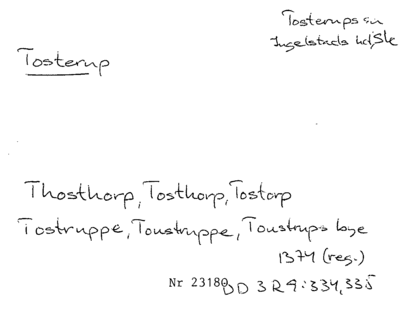 Tosterups sn
Ingelstads hd, Sk
Tosterup
Thosthorp, Tosthorp, Tostorp
Tostruppe, Toustruppe, Toustrups
1374 (reg.)
Nr 23180 DD 3 R 9:334, 335